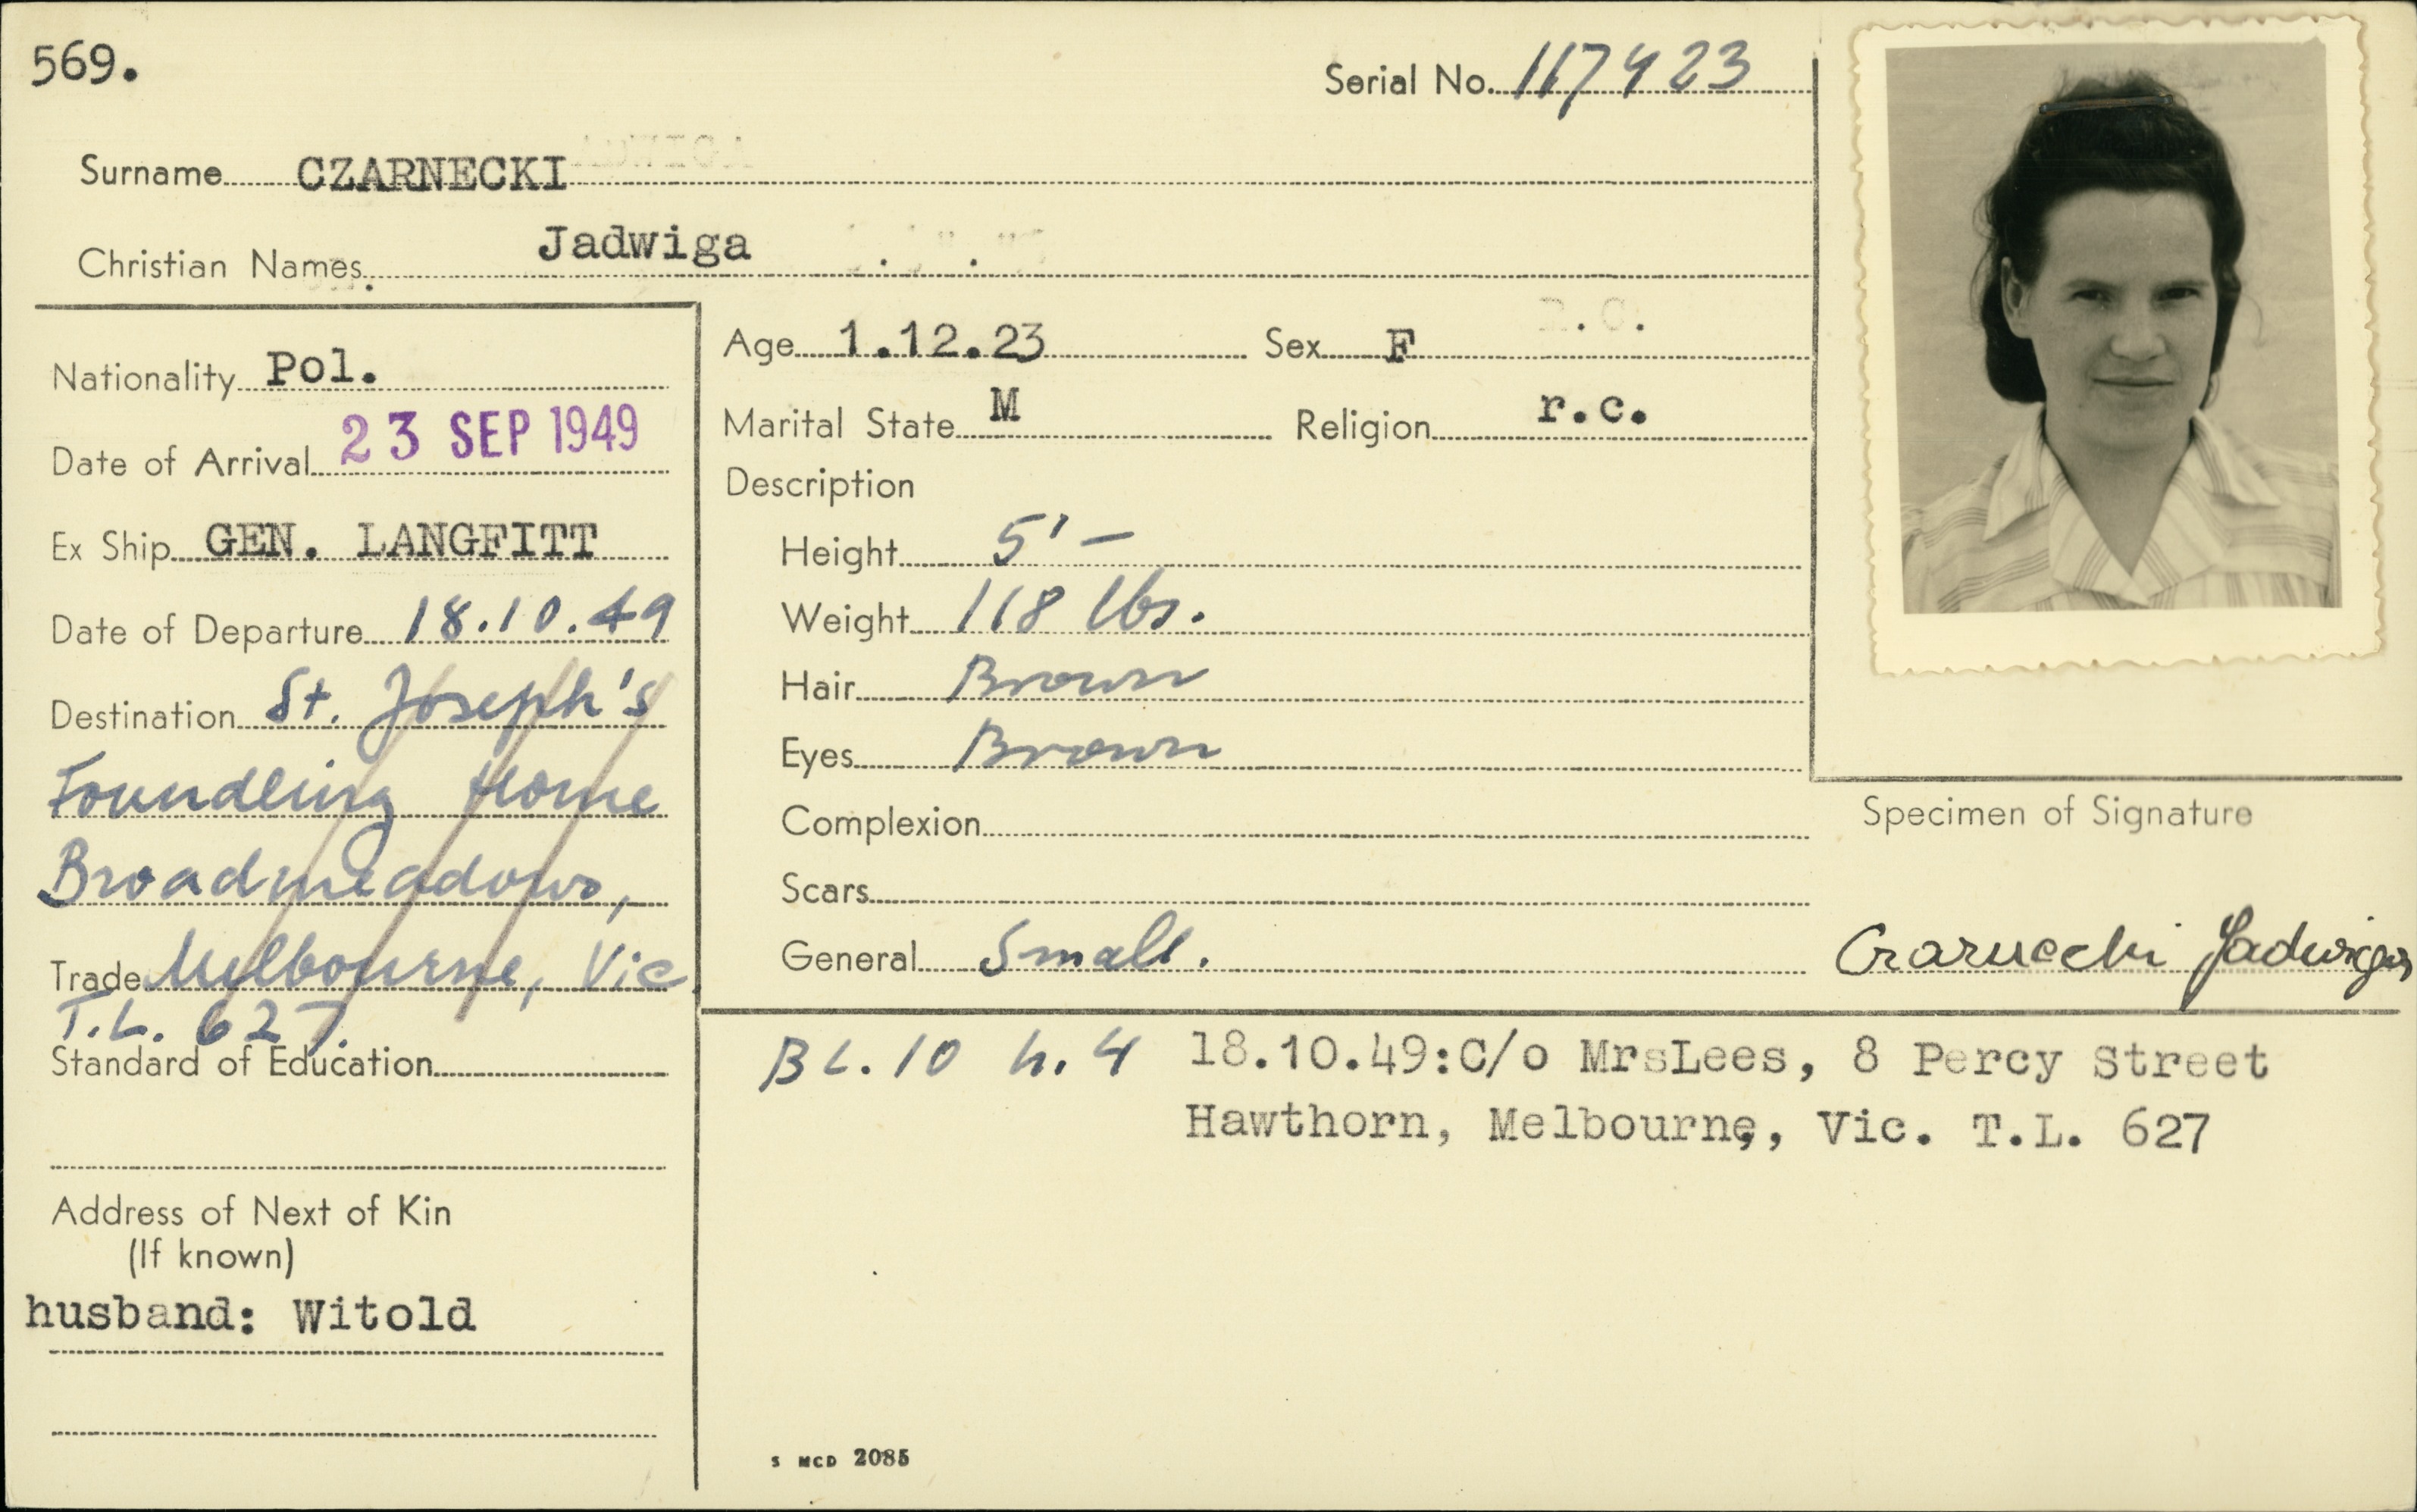 569.
Serial No. 117423
Surname CZARNECKI
Christian Names Jadwiga
Nationality Pol.
Date of Arrival 23 SEP 1949
Ex Ship GEN. LANGFITT
Date of Departure 18.10.49
Destination St. Joseph's
Foundling Home
Broadmeadows,
Trade Melbourne, Vic
T.L. 627.
Standard of Education
Address of Next of Kin
(If known)
husband: Witold
Age 1.12.23 Sex F
Marital State M Religion r.c.
Description
Height 5' –
Weight 118 lbs.
Hair Brown
Eyes Brown
Complexion
Scars
General Small.
Specimen of Signature
Czarnecki Jadwiga
BL. 10 h. 4 18.10.49:C/o MrsLees, 8 Percy Street
Hawthorn, Melbourne, Vic. T.L. 627
S MCD 2085